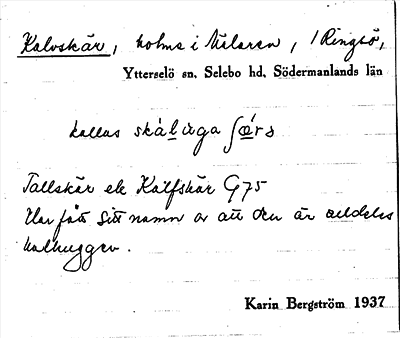 Kalvskär, holme i Mälaren, / Ringsö,
Ytterselö sn, Selebo hd, Södermanlands län
kallas
Tallskär el. Kalfskär G75
Har fått sitt namn av att den är alldeles
kalhuggen.
Karin Bergström 1937